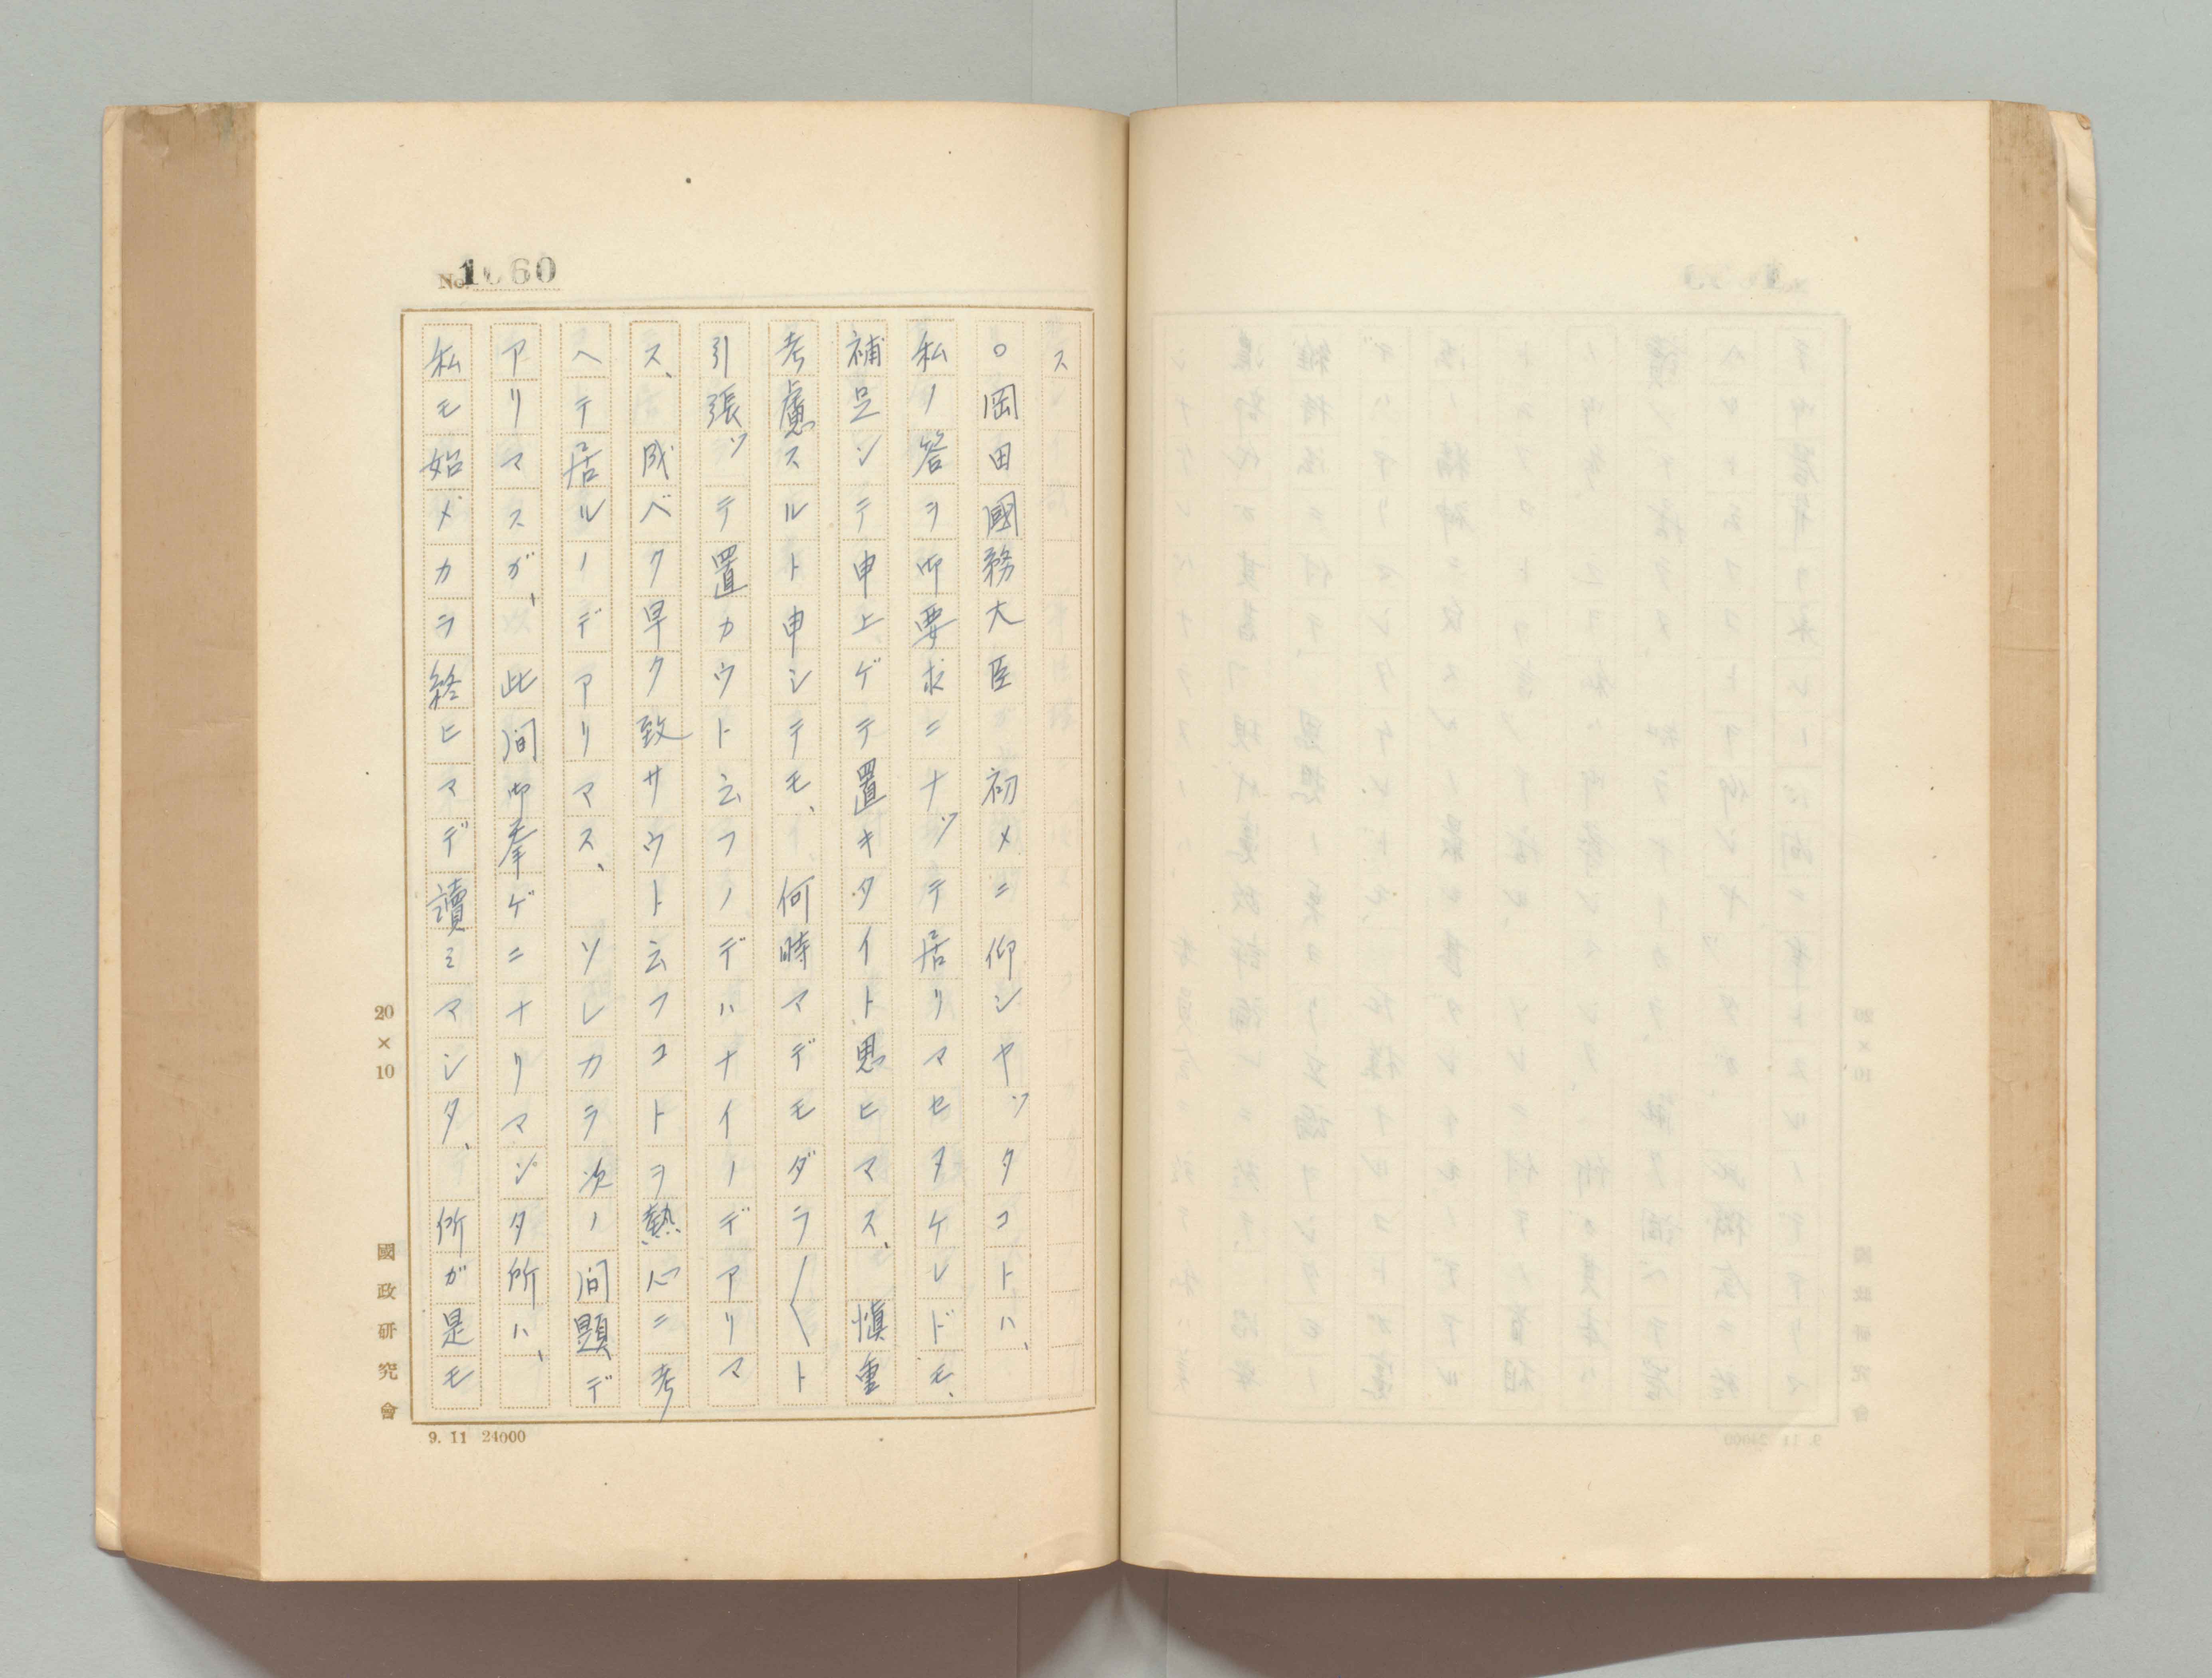 No. 1060
ス
○岡田國務大臣 初メニ仰シヤッタコトハ、
私ノ答ヲ御要求ニナッテ居リマセヌケレドモ、
補足シテ申上ゲテ置キタイト思ヒマス、 愼重
考慮スルト申シテモ、 何時マデモダラ〳〵ト
引張ッテ置カウト云フノデハナイノデアリマ
ス、 成ベク早ク致サウト云フコトヲ熱心ニ考
ヘテ居ルノデアリマス、 ソレカラ次ノ問題デ
アリマスガ、 此間御擧ゲニナリマシタ所ハ、
私モ始メカラ終ヒマデ讀ミマシタ、 所ガ是モ
20×10
國政研究會
9. 11 24000